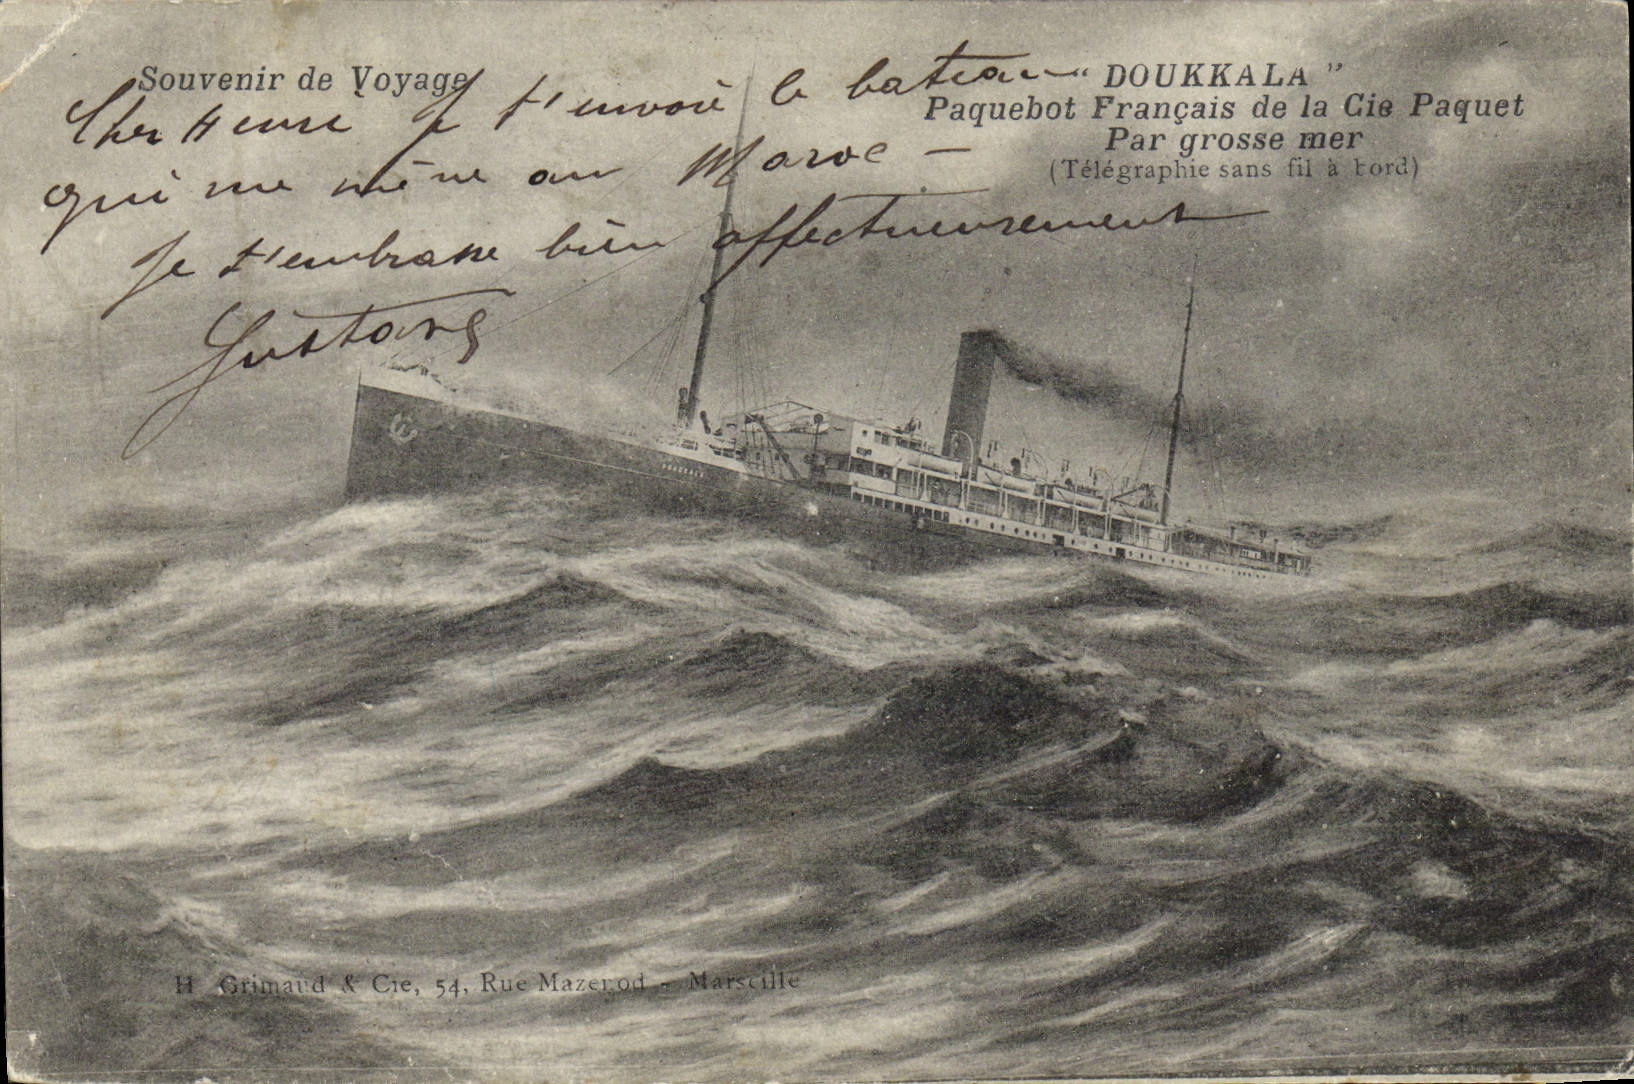 Souvenir de Voyage
“ DOUKKALA ”
Paquebot Français de la Cie Paquet
Par grosse mer
(Télégraphie sans fil à bord)
Cher Henri Je t'envoie le bateau
qui me mène au Maroc –
Je t'embrasse bien affectueusement
Gustave
DOUKKALA
H. Grimaud & Cie, 54, Rue Mazenod - Marseille